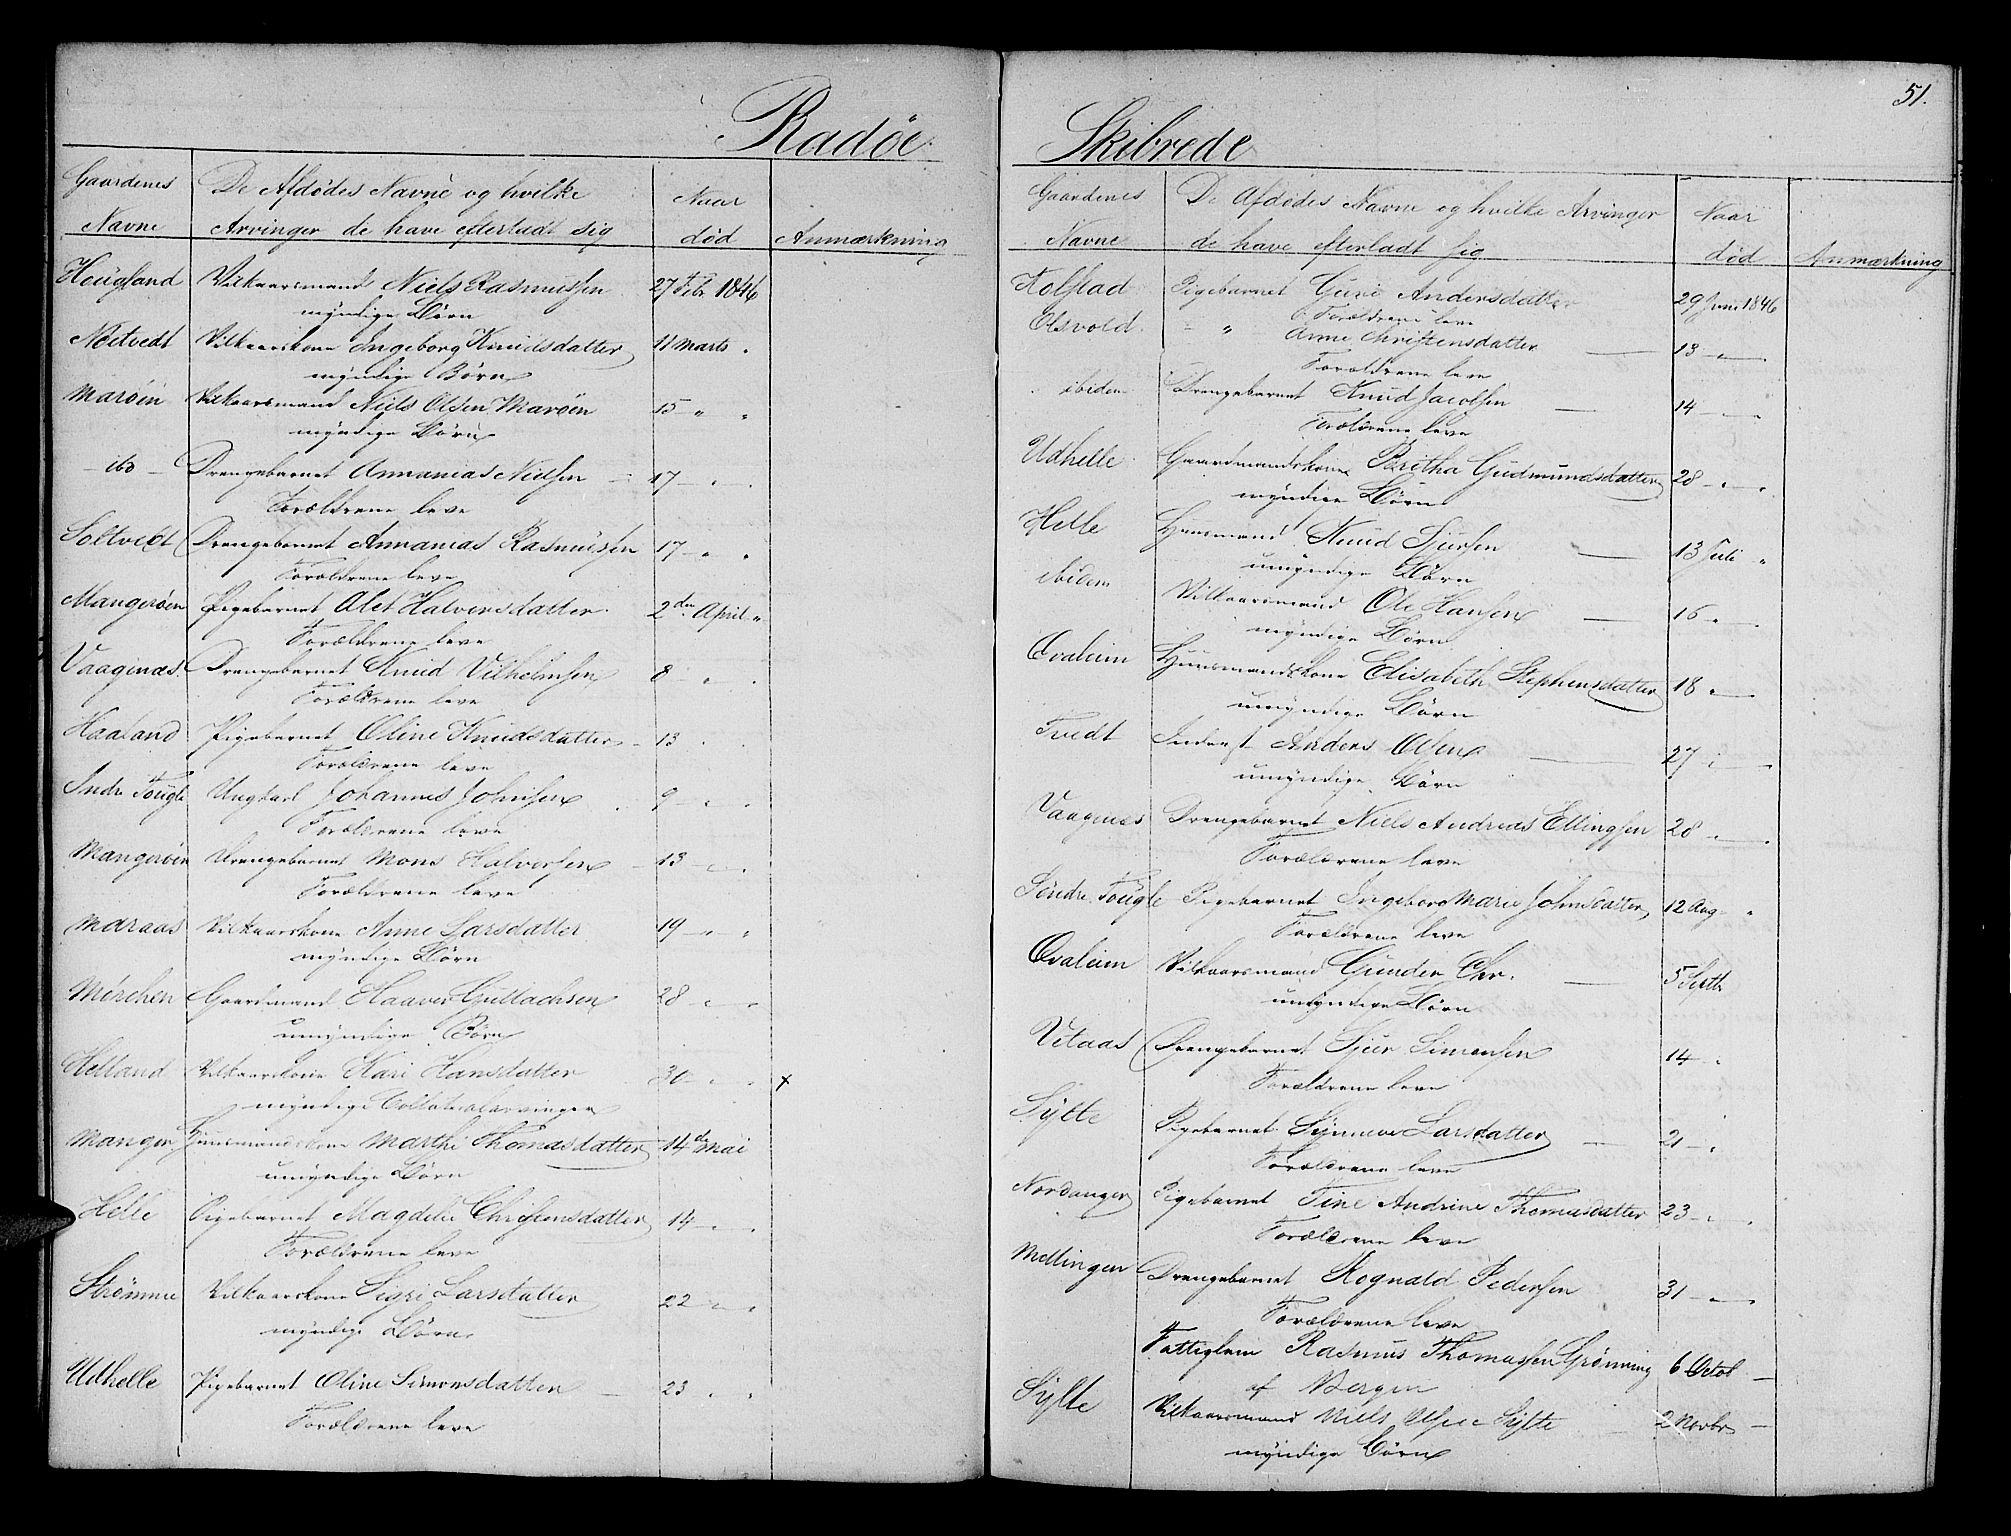 51.
Radöe
Gaardenes Navne
De Afdødes Navne og hvilke Arvinger de have efterladt sig
Naar død
Anmærkning
Heugland Vilkaarsmand Niels Rasmussen 27 Febr 1846
myndige Börn
Netvedt Vilkaarskone Ingeborg Knudsdatter 11 Marts "
myndige Börn
Maröen Vilkaarsmand Niels Olsen Maröen 15 " "
myndige Börn
ibd Drengebarnet Annanias Nielsen 17 — " —
Forældrene leve
Soltvedt Drengebarnet Annanias Rasmussen 17 — " "
Forældrene leve
Mangeröen Pigebarnet Alet Halversdatter 2den April "
Forældrene leve
Vaagenæs Drengebarnet Knud Vilhelmsen 8 — " —
Forældrene leve
Haaland Pigebarnet Oline Knudsdatter 13 " "
Forældrene leve
Indre Tougle Ungkarl Johannes Johnsen 9 — " "
Forældrene leve
Mangeröen Drengebarnet Mons Halversen 13 — " "
Forældrene leve
Maraas Vilkaarskone Anne Larsdatter 19 — " "
myndige Börn
Mörchen Gaardmand Haaver Gullachsen 28 — " —
umyndige Börn
Helland Vilkaarskone Kari Hansdatter 30 — " " x
myndige Collateralarvinger
Manger Huusmandskone Marthe Thomasdatter 14de Mai
umyndige Börn
Helle Pigebarnet Magdeli Christensdatter 14 — " —
Forældrene leve
Strömme Vilkaarskone Sigri Larsdatter 22 " "
myndige Börn
Udhelle Pigebarnet Oline Simonsdatter 23 " "
Forældrene leve
Skibrede
Gaardenes Navne
De Afdødes Navne og hvilke Arvinger de have efterladt sig
Naar død
Anmærkning
Kolstad Pigebarnet Guri Andersdatter 29 Juni 1846
Forældrene leve
Olsvold " " Anne Christensdatter — 13 — " —
Forældrene leve
ibidem Drengebarnet Knud Jacobsen — 14 — " —
Forældrene leve
Udhelle Gaardmandskone Britha Gudmundsdatter 28 — " "
myndige Börn
Helle Huusmand Knud Sjursen — 13 Juli "
umyndige Börn
ibidem Vilkaarsmand Ole Hansen — 16 " —
myndige Börn
Qvaleim Huusmandskone Elisabeth Stephensdatter 18 " —
umyndige Börn
Tvedt Inderst Anders Olsen — 27 " —
umyndige Börn
Vaagenæs Drengebarnet Niels Andreas Ellingsen 28 " —
Forældrene leve
Söndre Tougle Pigebarnet Ingeborg Marie Johnsdatter 12 Aug "
Forældrene leve
Qvaleim Vilkaarsmand Gunder Chr. — 5 Septb
umyndige Börn
Vetaas Drengebarnet Sjur Simonsen 14 — "
Forældrene leve
Sylte Pigebarnet Synneve Larsdatter — 21 — "
Forældrene leve
Nordanger Pigebarnet Tine Andrine Thomasdatter 23 — " —
Forældrene leve
Mellingen Drengebarnet Rognald Pedersen 31 — " —
Forældrene leve
Fattiglem Rasmus Thomassen Grönning 6 Octob —
af Bergen
Sylte Vilkaarsmand Niels Olsen Sylte — 2 Novbr —
myndige Börn